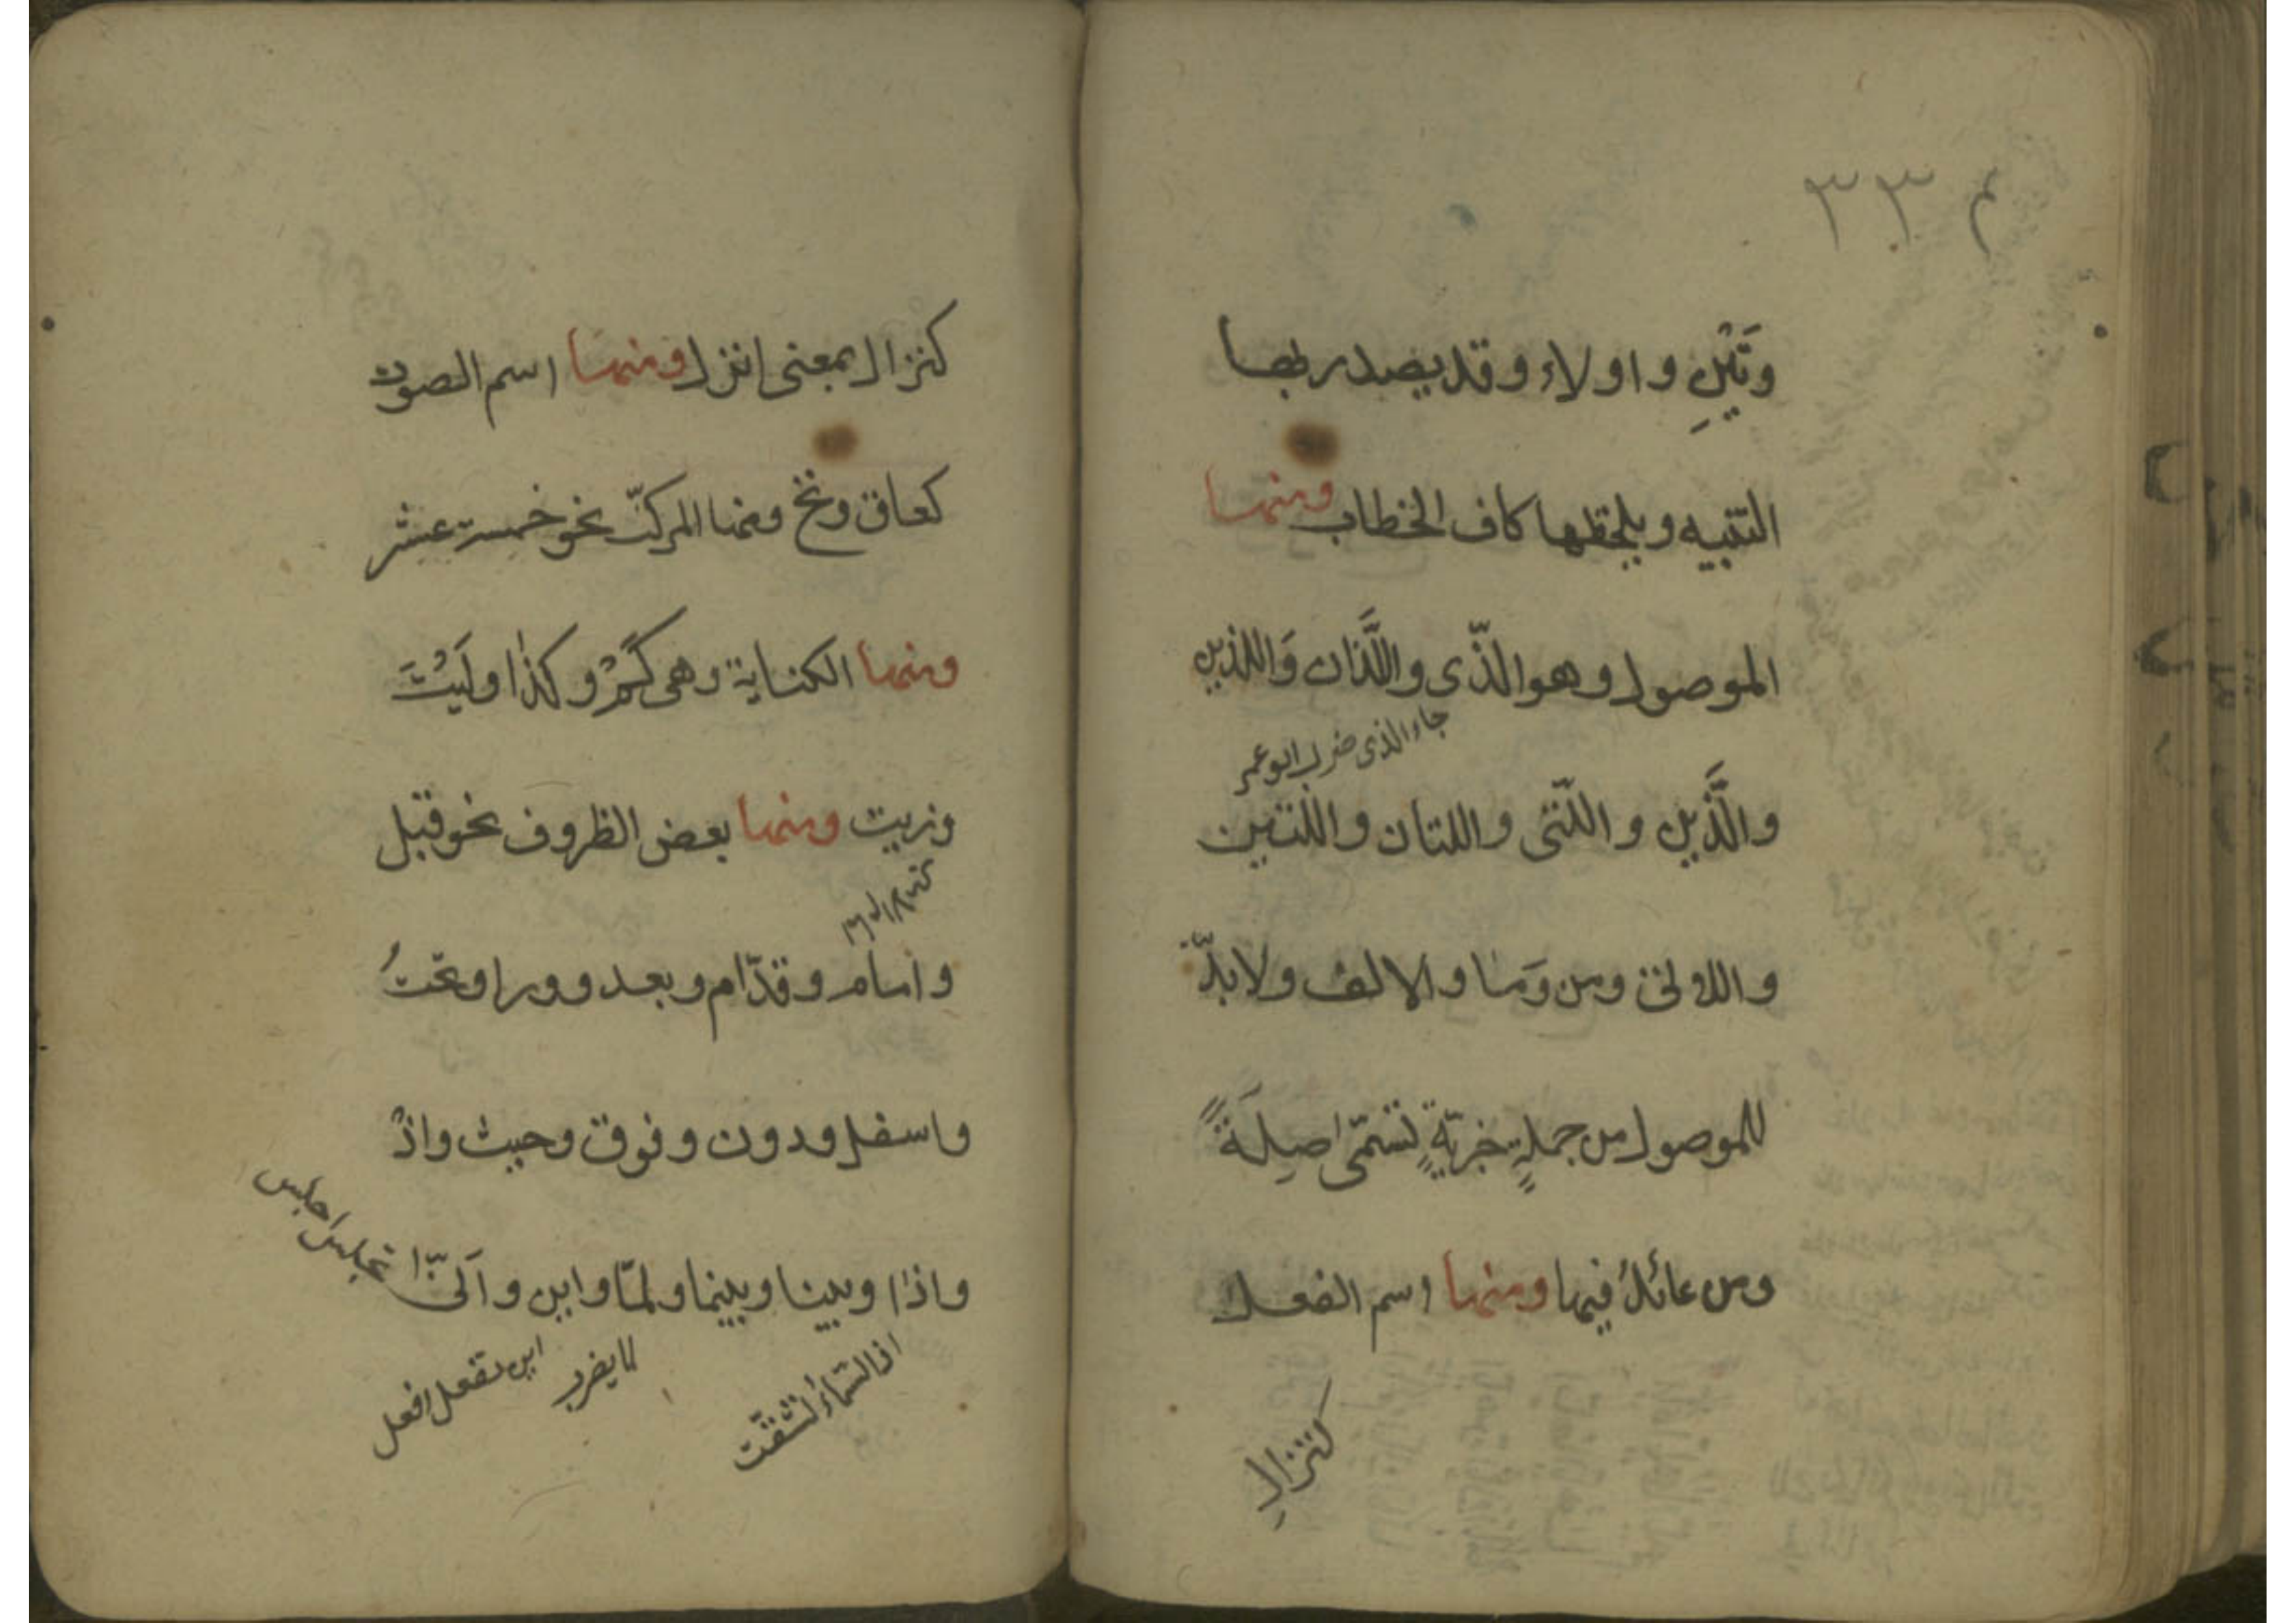 ٣٣ م
وَتَيْنِ واولاء وقد يصدر بها
التنبيه ويلحقها كاف الخطاب ومنها
الموصول وهو الّذى واللَّذان وَاللذين
جاء الذى ضرب ابو عمر
والَّذين والّتى واللتان واللتين
واللاتى ومن وَما والالف ولابدّ
للموصول من جملةٍ خبريّةٍ تسمّى صِلَةً
ومن عائدٌ فيها ومنها اسم الفعل
كنزال
كنزال بمعنى انزل ومنها اسم الصوت
كعاق ونخ ومنها المركبّ نحو خمسة عشر
ومنها الكناية وهى كَمْ وكذا وكَيْتَ
وزيت ومنها بعض الظروف نحو قبل
وامام وقدّام وبعد وورا وتحتُ
واسفل ودون وفوق وحيث واذْ
واذا وبينا وبينما ولمّا واين وانّى
تجلس اجلس
اذا السّماءُ انشقّت
لما يضرب
اين تفعل افعل